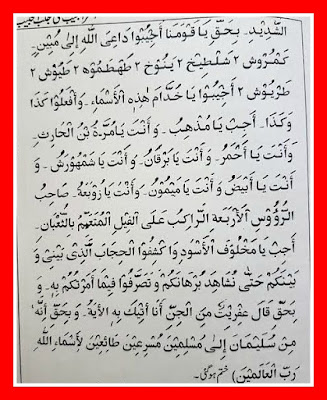 الشَّدِيْدِ۔ بِحَقِّ يَا قَوْمَنَا اَجِيْبُوْا دَاعِيَ اللّٰهِ اِلٰى مُبِيْنٍ۔
كَمْرُوْشٍ ٢ شَلْطِيْخٍ ٢ يَنُوْخٍ ٢ طَهْطَمُوْهٍ ٢ طَيُوْشٍ
طَرْيُوْشٍ ٢ اَجِيْبُوْا يَا خُدَّامَ هٰذِهِ الْاَسْمَاءِ۔ وَافْعَلُوْا كَذَا
وَكَذَا۔ اَجِبْ يَا مُذْهِبُ۔ وَ اَنْتَ يَا مُرَّةُ بْنُ الْحَارِثِ۔
وَاَنْتَ يَا اَحْمَرُ۔ وَ اَنْتَ يَا بَرْقَانُ۔ وَ اَنْتَ يَا شَمْهُوْرَشُ۔ وَ
اَنْتَ يَا اَبْيَضُ وَ اَنْتَ يَا مَيْمُوْنُ۔ وَاَنْتَ يَا زَوْبَعَةُ۔ صَاحِبُ
الرُّؤُوْسِ الْاَرْبَعَةِ الرَّاكِبُ عَلَى الْفِيْلِ الْمُتَعَمِّمُ بِالثُّعْبَانِ۔
اَجِبْ يَا مَخْلُوْفُ الْاَسْوَدُ وَاكْشِفُوا الْحِجَابَ الَّذِيْ بَيْنِيْ وَ
بَيْنَكُمْ حَتّٰى نُشَاهِدَ بُرْهَانَكُمْ وَ تَصَرَّفُوْا فِيْمَا اَمَرْتُكُمْ بِهٖ۔ وَ
بِحَقِّ قَالَ عِفْرِيْتٌ مِّنَ الْجِنِّ اَنَا اٰتِيْكَ بِهِ الْاٰيَةَ۔ وَ بِحَقِّ اِنَّهٗ
مِنْ سُلَيْمَانَ اِلٰى مُسْلِمِيْنَ مُسْرِعِيْنَ طَائِعِيْنَ لِاَسْمَاءِ اللّٰهِ
رَبِّ الْعَالَمِيْنَ) ختم ہوگئی۔